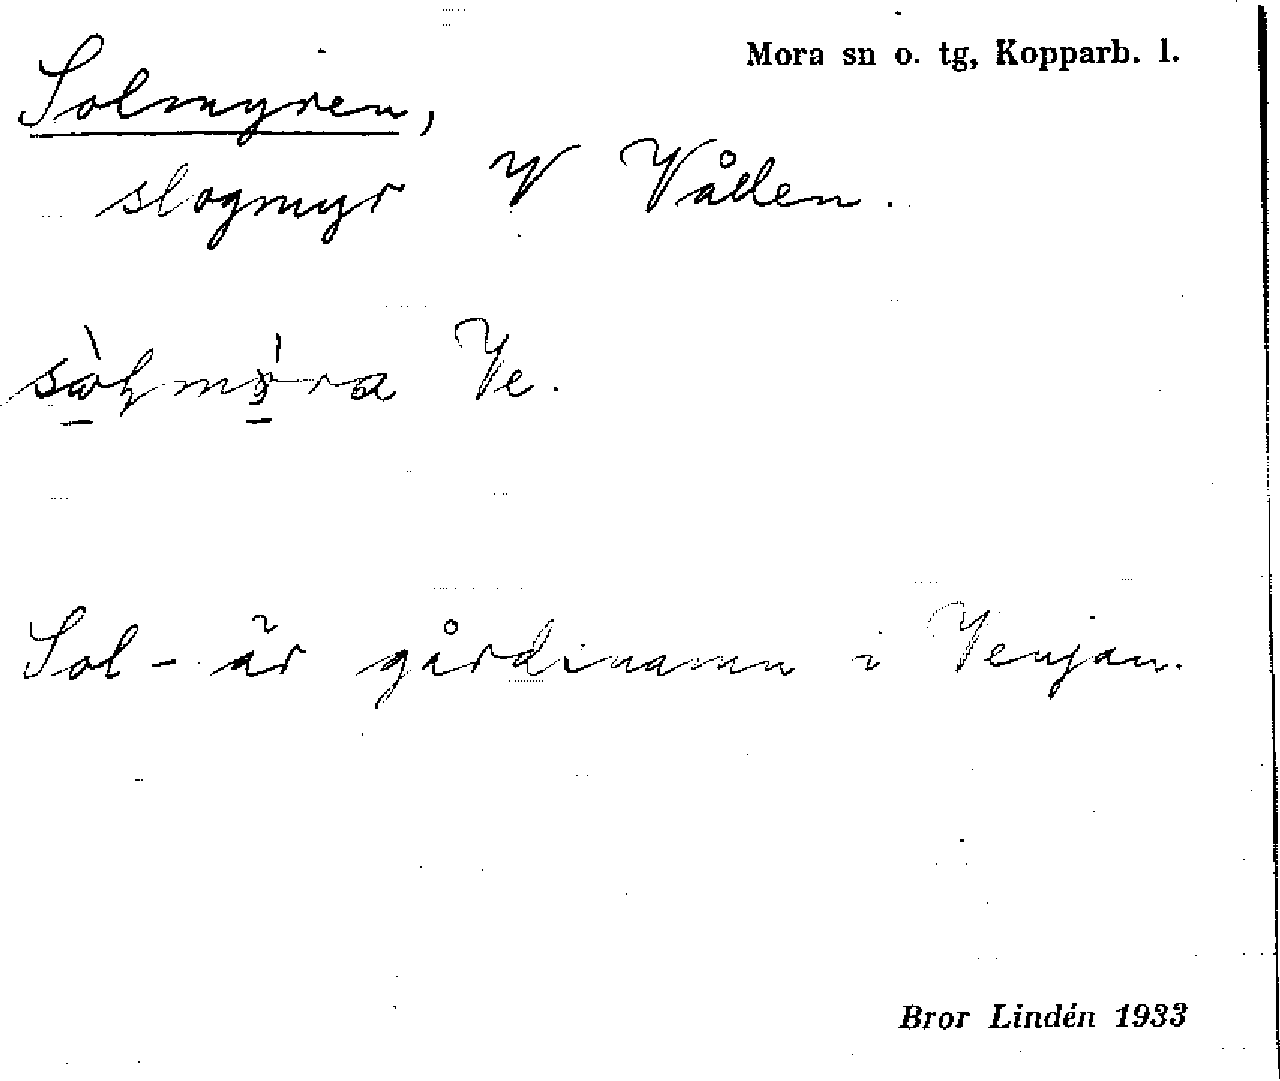 Mora sn o. tg, Kopparb. l.
Solmyren,
slogmyr V Vållen.
Ve.
Sol- är gårdsnamn i Venjan.
Bror Lindén 1933